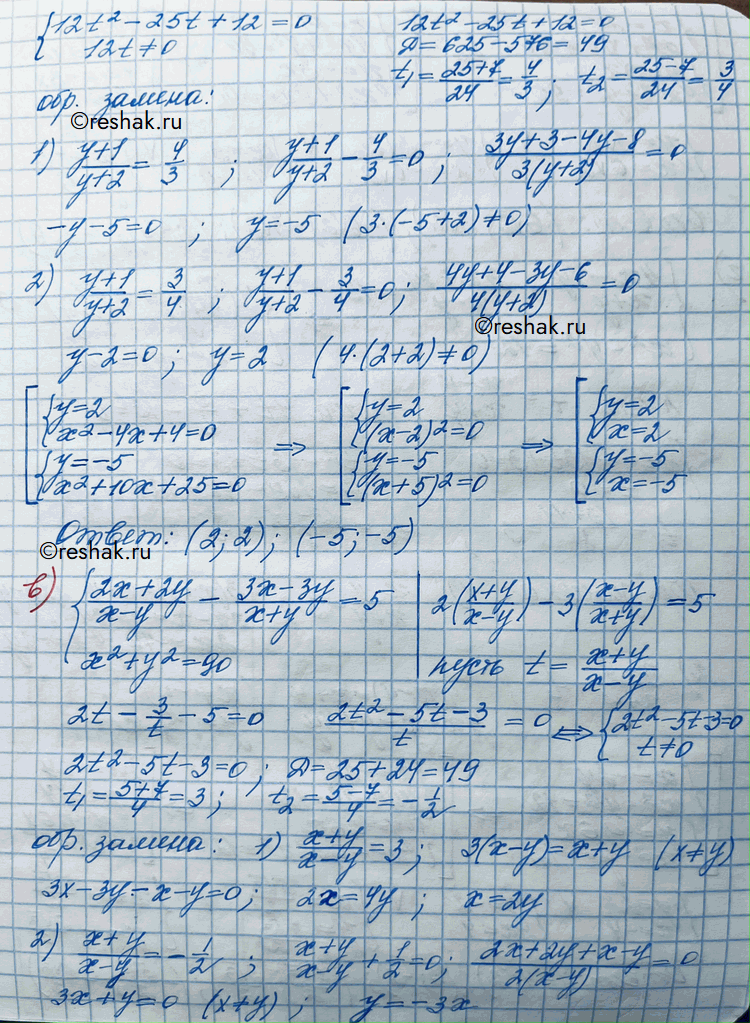 {12t² - 25t + 12 = 0    12t² - 25t + 12 = 0
12t ≠ 0    Д = 625 - 576 = 49
t₁ = (25+7)/24 = 4/3 ; t₂ = (25-7)/24 = 3/4
обр. замена:
©reshak.ru
1) (y+1)/(y+2) = 4/3 ; (y+1)/(y+2) - 4/3 = 0 ; (3y+3-4y-8)/(3(y+2)) = 0
-y-5=0 ; y=-5 (3·(-5+2) ≠ 0)
2) (y+1)/(y+2) = 3/4 ; (y+1)/(y+2) - 3/4 = 0 ; (4y+4-3y-6)/(4(y+2)) = 0
©reshak.ru
y-2=0 ; y=2 (4·(2+2) ≠ 0)
[{y=2    [{y=2    [{y=2
x²-4x+4=0 ⇒ (x-2)²=0 ⇒ x=2
{y=-5    {y=-5    {y=-5
x²+10x+25=0    (x+5)²=0    x=-5
Ответ: (2;2); (-5;-5)
©reshak.ru
в) {(2x+2y)/(x-y) - (3x-3y)/(x+y) = 5 | 2((x+y)/(x-y)) - 3((x-y)/(x+y)) = 5
x²+y²=90 | пусть t = (x+y)/(x-y)
2t - 3/t - 5 = 0    (2t²-5t-3)/t = 0 ⇔ {2t²-5t-3=0
t≠0
2t²-5t-3=0 ; Д=25+24=49
t₁ = (5+7)/4 = 3 ; t₂ = (5-7)/4 = -1/2
обр. замена: 1) (x+y)/(x-y) = 3 ; 3(x-y)=x+y (x≠y)
3x-3y-x-y=0 ; 2x=4y ; x=2y
2) (x+y)/(x-y) = -1/2 ; (x+y)/(x-y) + 1/2 = 0 ; (2x+2y+x-y)/(2(x-y)) = 0
3x+y=0 (x≠y) ; y=-3x